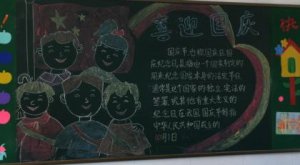 喜迎国庆
国庆节也称国庆日、国
庆纪念日,是指由一个国家制定的
用来纪念国家本身的法定节日
通常是这个国家的独立、宪法的
签署、或其他有重大意义的
纪念日。在我国国庆节特指
中华人民共和国成立的
10月1日